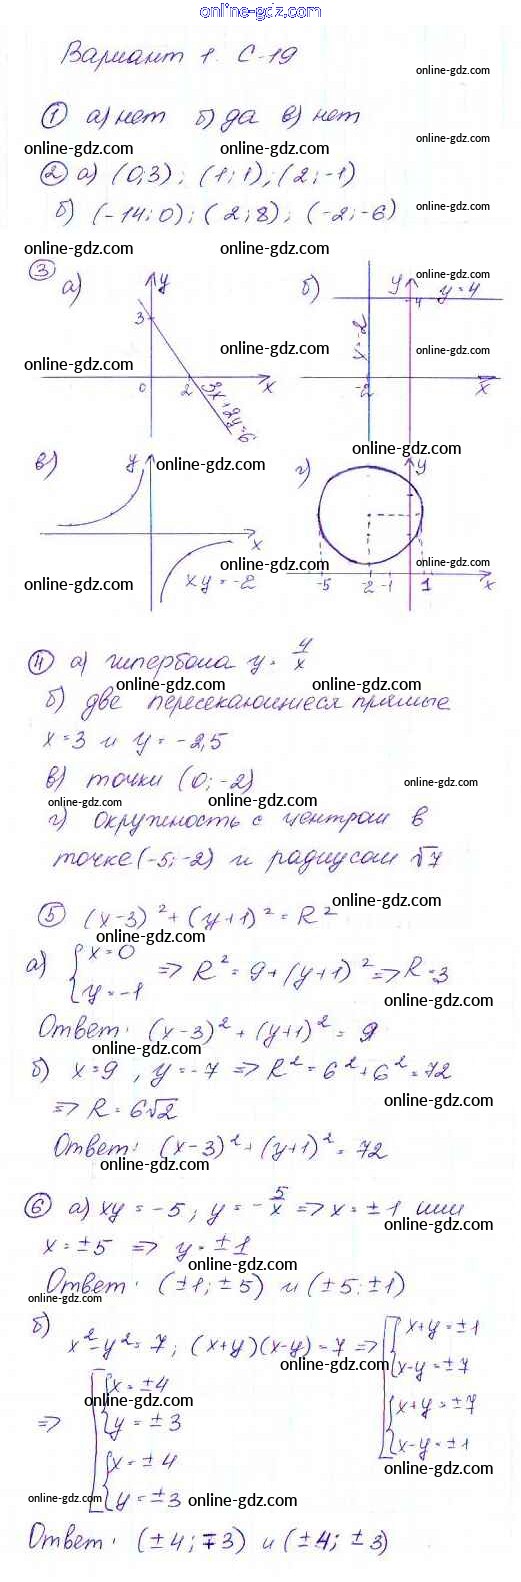 online-gdz.com
Вариант 1. С-19
online-gdz.com
① а) нет б) да в) нет
online-gdz.com
online-gdz.com online-gdz.com
② а) (0;3); (1;1); (2;-1)
online-gdz.com
б) (-14;0); (2;8); (-2;-6)
online-gdz.com online-gdz.com
③ а) y 3 0 2 x 3x+2y=6
б) y y=4 4 x=-2 -2 x
online-gdz.com
online-gdz.com online-gdz.com online-gdz.com
online-gdz.com
в) y x xy=-2
online-gdz.com
г) y -5 -2 -1 1 x
online-gdz.com online-gdz.com online-gdz.com
④ а) гипербола y = 4/x
online-gdz.com online-gdz.com
б) две пересекающиеся прямые
x=3 и y=-2,5
online-gdz.com
в) точки (0;-2)
online-gdz.com
online-gdz.com online-gdz.com
г) окружность с центром в
точке (-5;-2) и радиусом √7
online-gdz.com
⑤ (x-3)²+(y+1)²=R²
online-gdz.com
а) { x=0 y=-1 => R²=9+(y+1)² => R=3
online-gdz.com
Ответ: (x-3)²+(y+1)²=9
online-gdz.com
б) x=9, y=-7 => R²=6²+6²=72
online-gdz.com
=> R=6√2
Ответ: (x-3)²+(y+1)²=72
online-gdz.com
⑥ а) xy=-5, y=-5/x => x=±1 или
online-gdz.com
x=±5 => y=±1
Ответ: (±1;±5) и (±5;±1)
online-gdz.com
б) x²-y²=7; (x+y)(x-y)=7 => [ { x+y=±1
online-gdz.com
x-y=±7
{ x+y=±7
x-y=±1
online-gdz.com
=> [ { x=±4
online-gdz.com
y=±3
{ x=±4
y=±3
online-gdz.com online-gdz.com
Ответ: (±4;∓3) и (±4;±3)